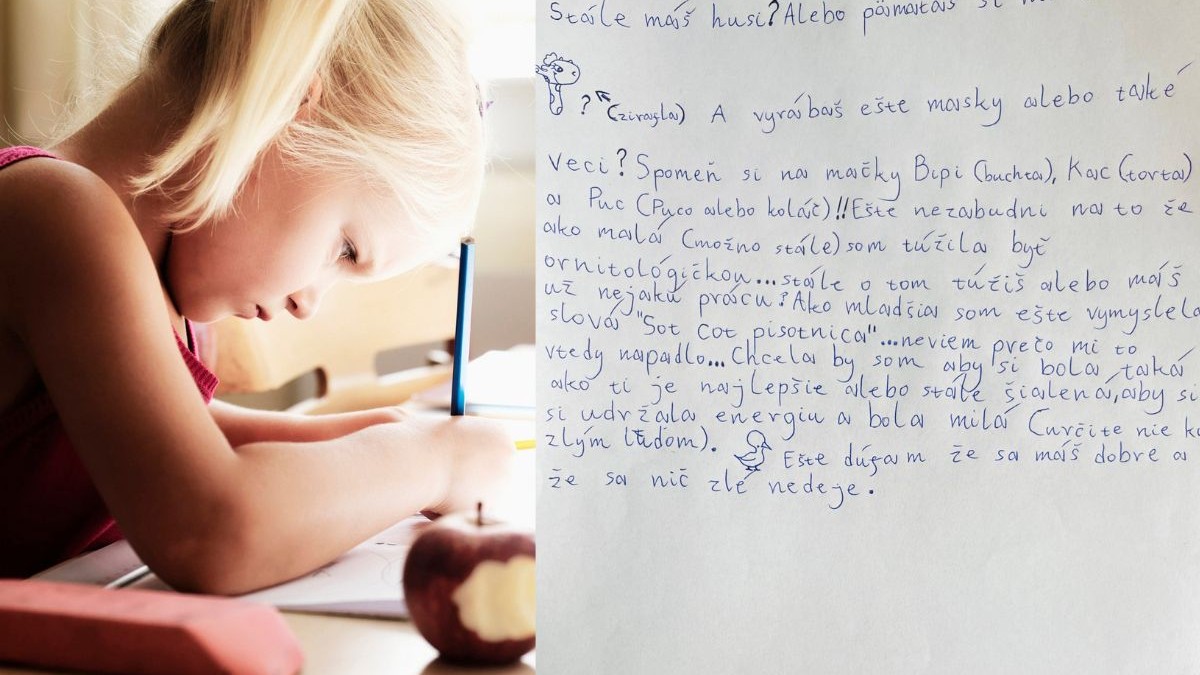 Stále máš husi? Alebo pämätáš si
? (zirafla) A vyrábaš ešte masky alebo také
veci? Spomeň si na mačky Bipi (buchta), Kac (torta)
a Puc (Puco alebo koláč)!! Ešte nezabudni na to že
ako malá (možno stále) som túžila byť
ornitológičkou... stále o tom túžiš alebo máš
už nejakú prácu? Ako mladšia som ešte vymyslela
slová "Sot cot pisotnica"... neviem prečo mi to
vtedy napadlo... Chcela by som aby si bola taká
ako ti je najlepšie alebo stále šialená, aby si
si udržala energiu a bola milá (určite nie k
zlým ľuďom). Ešte dúfam že sa máš dobre a
že sa nič zlé nedeje.